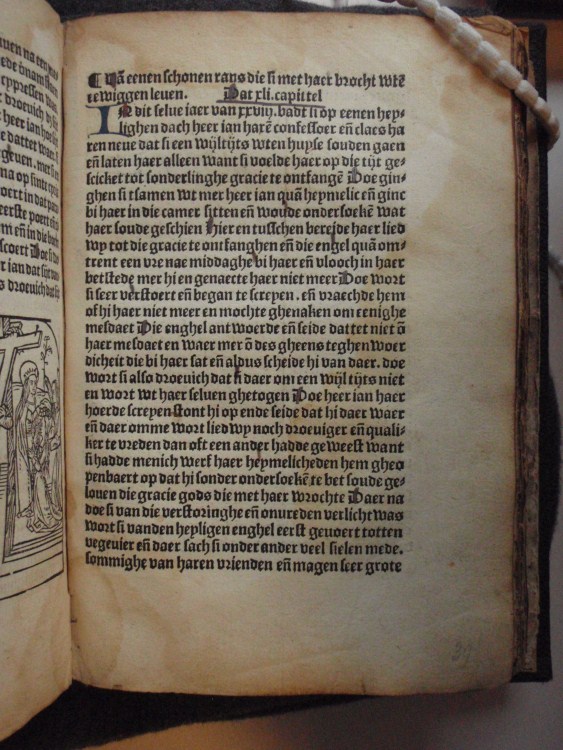 uen na ten
ede dnam
cypressen
droeuich
heer ian ho
e dattet waer
geuen. met
na op sinte
oert in dat
eerste poert en
om eñ in die b
scoert Doe si d
er ian dat sijt va
s droeuich dat si
¶ Vā eenen schonen rays die si met haer brocht wtē
eewiggen leuen. Dat xli. capittel
IN dit selue iaer van xxviij. badt si op eenen hey⸗
lighen dach heer ian harē confessoer eñ claes ha
ren neue dat si een wijltijts wten huyse souden gaen
eñ laten haer alleen want si voelde haer op die tijt ge⸗
scicket tot sonderlinghe gracie te ontfangē Doe gin⸗
ghen si tsamen wt mer heer ian quā heymelic eñ ginc
bi haer in die camer sitten eñ woude ondersoekē wat
haer soude geschien Hier en tusschen bereide haer lied
wy tot die gracie te ontfanghen eñ die engel quā om⸗
trent een vre nae middaghe bi haer eñ vlooch in haer
betstede mer hi en genaecte haer niet meer Doe wort
si seer verstoert eñ began te screyen. eñ vraechde hem
of hi haer niet meer en mochte ghenaken om eenighe
mesdaet Die enghel antwoerde eñ seide dattet niet ō
haer mesdaet en waer mer ō des gheens teghen woer
dicheit die bi haer sat eñ aldus scheide hi van daer. doe
wort si also droeuich dat si daer om een wijltijts niet
en wort wt haer seluen ghetogen Doe heer ian haer
hoerde screyen stont hi op ende seide dat hi daer waer
eñ daer omme wort lied wy noch droeuiger eñ quali⸗
ker te vreden dan oft een ander hadde geweest want
si hadde menich werf haer heymelicheden hem gheo
penbaert op dat hi sonder ondersoekē te bet soude ge⸗
louen die gracie gods die met haer wrochte Daer na
doe si van die verstoringhe eñ onureden verlicht was
wort si vanden heyligen enghel eerst geuoert totten
vegeuier eñ daer sach si onder ander veel sielen mede.
sommighe van haren vrienden eñ magen seer grote